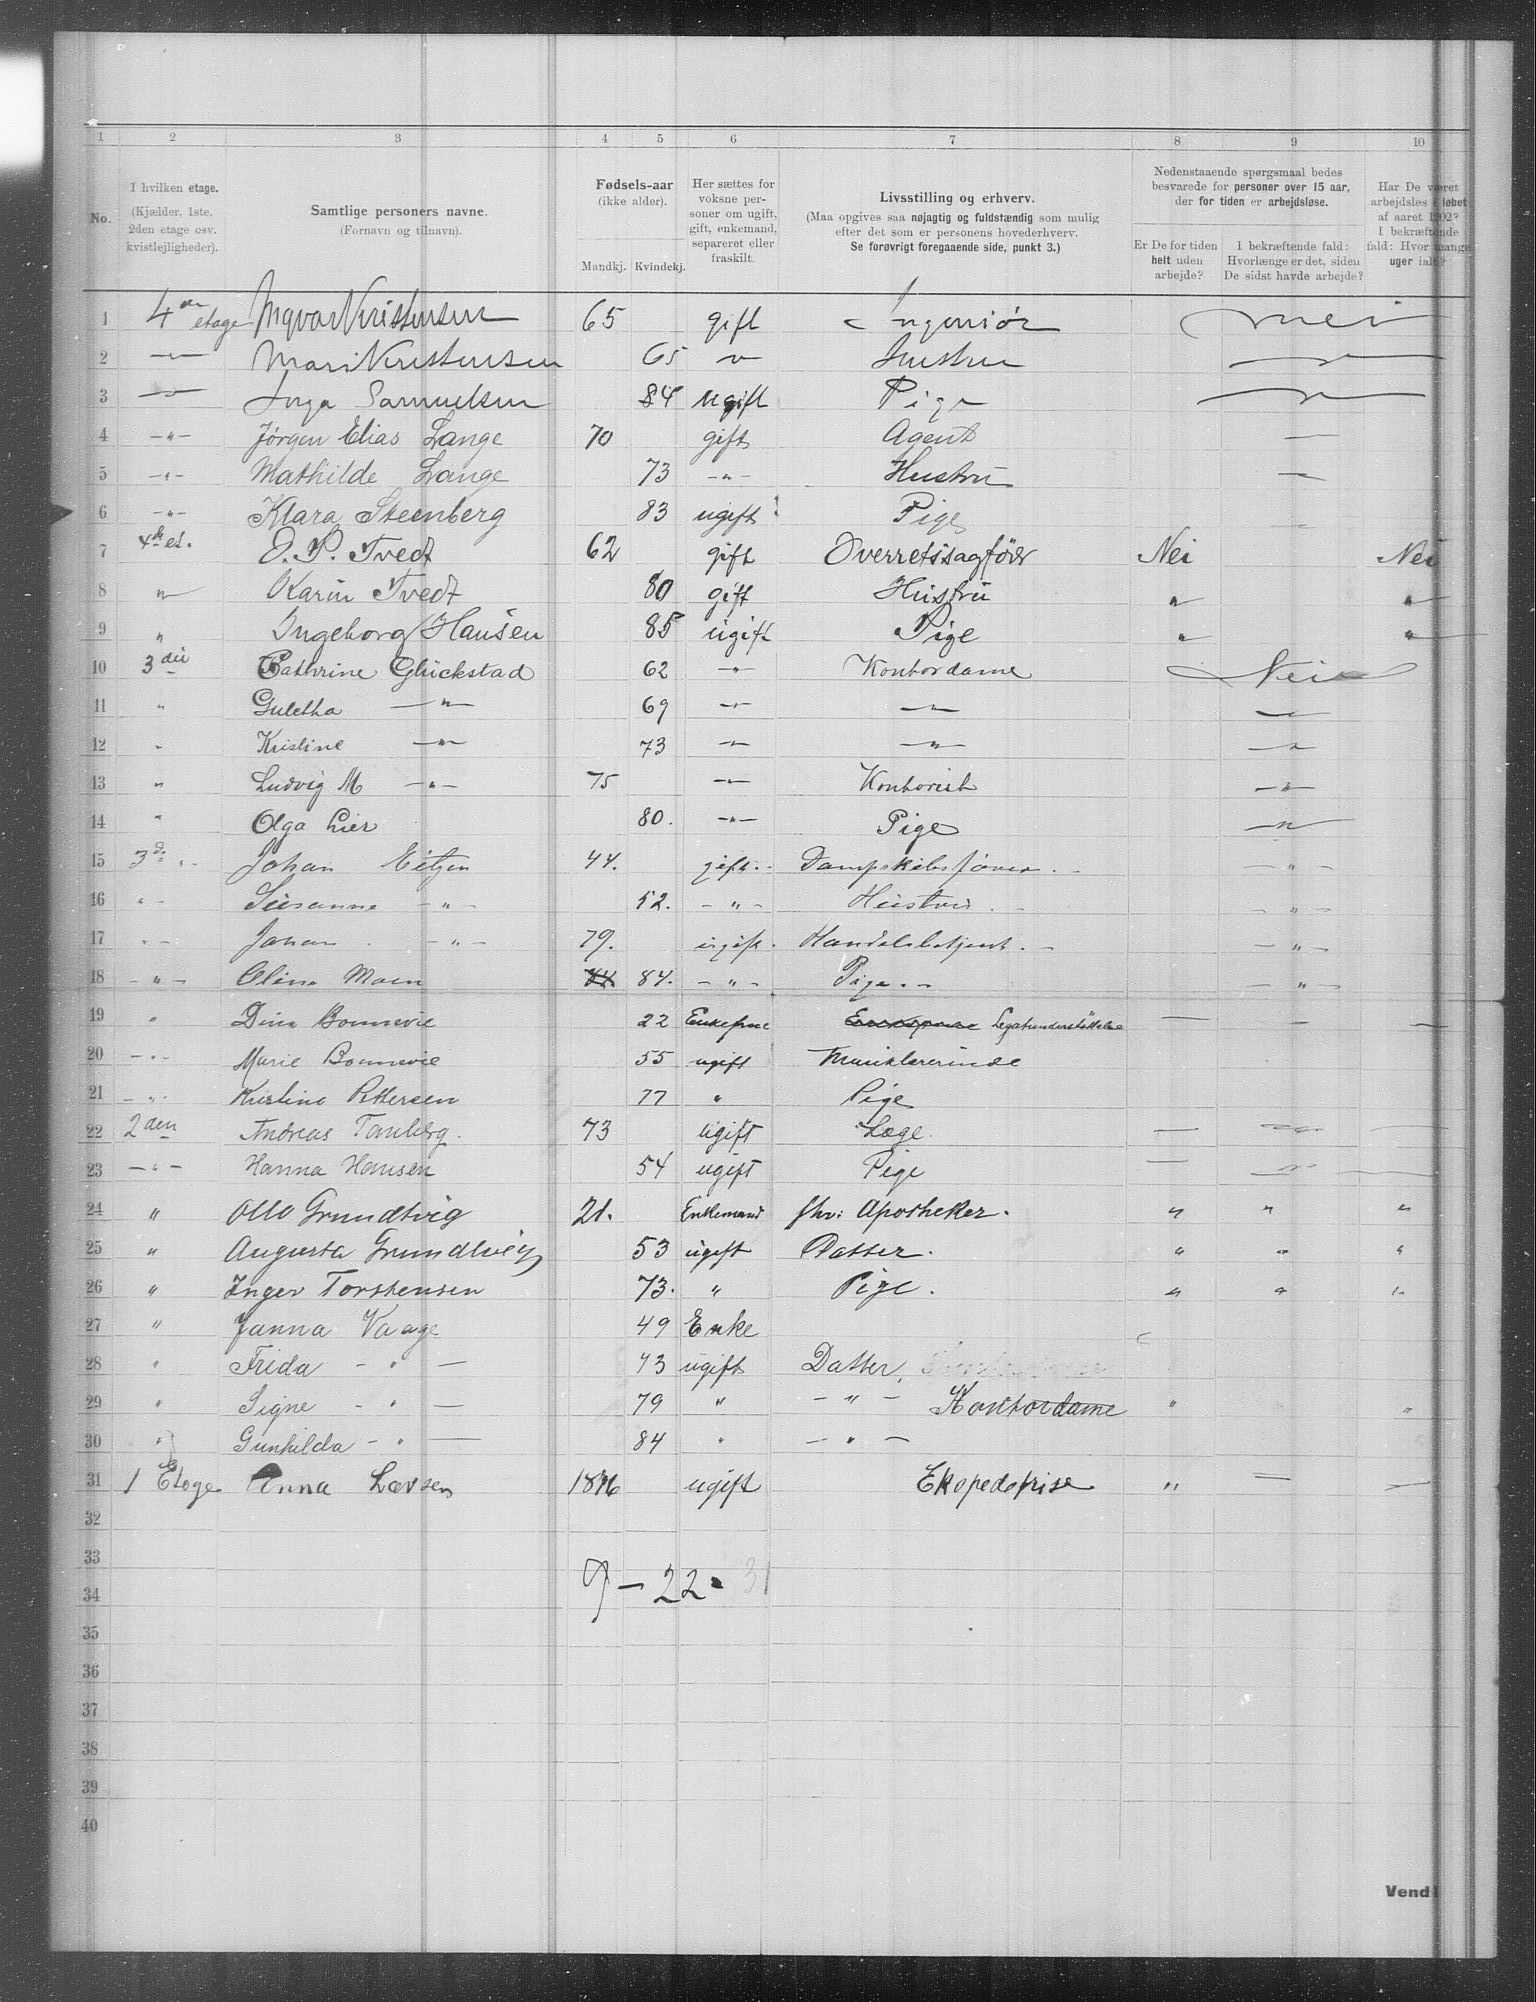 1 2 3 4 5 6 7 8 9 10
No.
I hvilken etage.
(Kjælder, 1ste,
2den etage osv.
kvistlejligheder).
Samtlige personers navne.
(Fornavn og tilnavn).
Fødsels-aar
(ikke alder).
Mandkj. Kvindekj.
Her sættes for
voksne per-
soner om ugift,
gift, enkemand,
separeret eller
fraskilt.
Livsstilling og erhverv.
(Maa opgives saa nøjagtig og fuldstændig som mulig
efter det som er personens hovederhverv.
Se forøvrigt foregaaende side, punkt 3.)
Nedenstaaende spørgsmaal bedes
besvarede for personer over 15 aar,
der for tiden er arbejdsløse.
Er De for tiden
helt uden
arbejde?
I bekræftende fald:
Hvorlænge er det, siden
De sidst havde arbejde?
Har De været
arbejdsløs i løbet
af aaret 1902?
I bekræftende
fald: Hvor mange
uger ialt?
1 4 etage Ingvar Kristensen 65 gift Ingeniør nei
2 — " — Mari Kristensen 65 " Hustru "
3 — " — Inga Samuelsen 84 ugift Pige "
4 — " — Jørgen Elias Lange 70 gift Agent —
5 — " — Mathilde Lange 73 — " — Hustru —
6 — " — Klara Steenberg 83 ugift Pige —
7 4de et. O. P. Tvedt 62 gift Overretssagfører Nei Nei
8 " Karin Tvedt 80 gift Hustru " "
9 " Ingeborg Hansen 85 ugift Pige " "
10 3die Cathrine Glückstad 62 — " — Kontordame Nei
11 " Guletha — " — 69 — " — — " — — " —
12 " Kristine — " — 73 — " — — " — — " —
13 " Ludvig M — " — 75 — " — Kontorist — " —
14 " Olga Lier 80. — " — Pige — " —
15 3d " - Johan Eitzen 44. gift. - Dampskibsfører. - - " -
16 " - Susanne - " - 52. - " - Hustru. - - " -
17 " - Johan - " - 79. ugift. Handelsbetjent. - - " -
18 - " - Oline Moen 84 84. - " - Pige. - - " -
19 " Dina Bonnevie 22 Enkefrue Legatunderstøttelse — — —
20 - " - Marie Bonnevie 55 ugift Musiklærerinde
21 - " - Kristine Pettersen 77 " Pige
22 2den Andreas Tanberg. 73 ugift Læge. — — —
23 - " - Hanna Hansen 54 ugift Pige — " —
24 " Otto Grundtvig 21. Enkemand fhv: Apotheker. " " "
25 " Augusta Grundtvig 53 ugift Datter. " " "
26 " Inger Torstensen 73. " Pige. " " "
27 " Janna Vaage 49 Enke
28 " Frida - " — 73 ugift Datter,
29 " Signe - " — 79 " — " — Kontordame " "
30 " Gunhilda - " — 84 " — " —
31 1 Etage Anna Larsen 1876 ugift Ekspeditrise " — —
32
33
9 — 22 • 31
34
35
36
37
38
39
40
Vend!